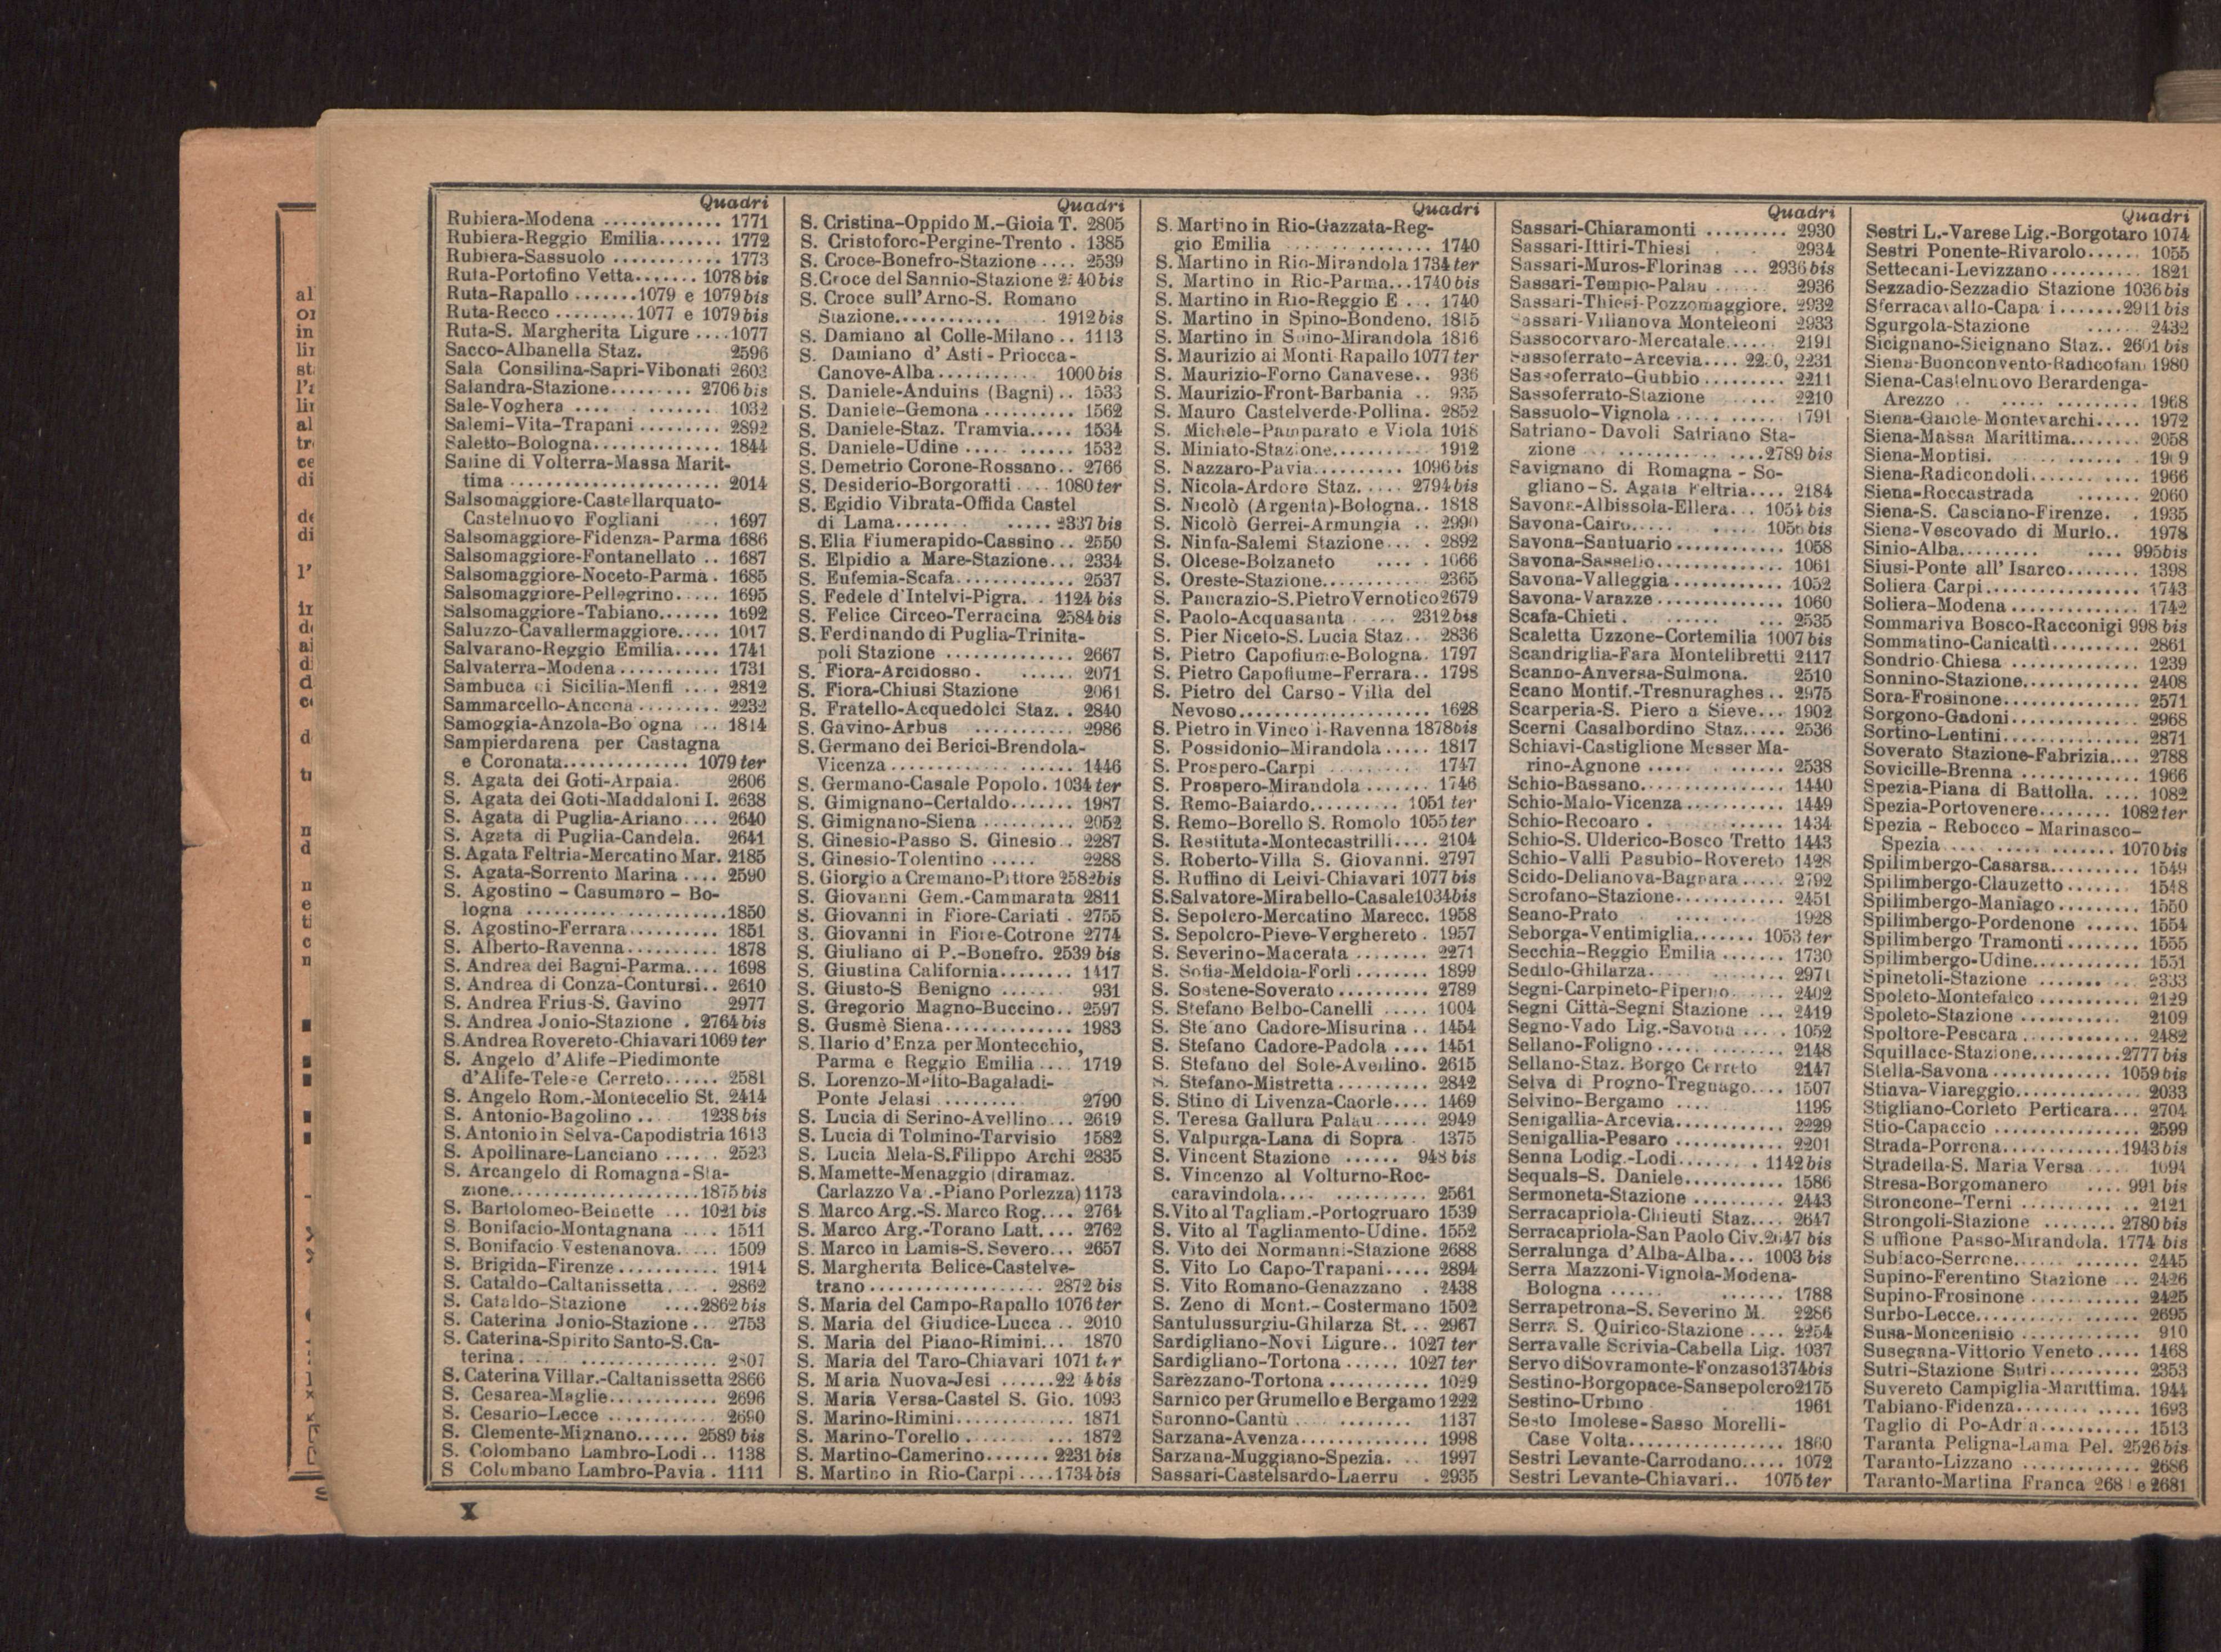 Quadri
Rubiera-Modena ............. 1771
Rubiera-Reggio Emilia....... 1772
Rubiera-Sassuolo ............ 1773
Ruta-Portofino Vetta....... 1078 bis
Ruta-Rapallo .......1079 e 1079 bis
Ruta-Recco .........1077 e 1079 bis
Ruta-S. Margherita Ligure ....1077
Sacco-Albanella Staz. 2596
Sala Consilina-Sapri-Vibonati 2603
Salandra-Stazione......... 2706 bis
Sale-Voghera .... . ....... 1032
Salemi-Vita-Trapani ......... 2892
Saletto-Bologna............. 1844
Saline di Volterra-Massa Marit-
tima ...................... 2014
Salsomaggiore-Castellarquato-
Castelnuovo Fogliani .... 1697
Salsomaggiore-Fidenza-Parma 1686
Salsomaggiore-Fontanellato .. 1687
Salsomaggiore-Noceto-Parma . 1685
Salsomaggiore-Pellegrino..... 1695
Salsomaggiore-Tabiano...... 1692
Saluzzo-Cavallermaggiore..... 1017
Salvarano-Reggio Emilia..... 1741
Salvaterra-Modena ........... 1731
Sambuca di Sicilia-Menfi .... 2812
Sammarcello-Ancona ......... 2232
Samoggia-Anzola-Bologna ... 1814
Sampierdarena per Castagna
e Coronata............. 1079 ter
S. Agata dei Goti-Arpaia. 2606
S. Agata dei Goti-Maddaloni I. 2638
S. Agata di Puglia-Ariano.... 2640
S. Agata di Puglia-Candela. 2641
S. Agata Feltria-Mercatino Mar. 2185
S. Agata-Sorrento Marina .... 2590
S. Agostino – Casumaro – Bo-
logna .....................1850
S. Agostino-Ferrara.......... 1851
S. Alberto-Ravenna......... 1878
S. Andrea dei Bagni-Parma.... 1698
S. Andrea di Conza-Contursi.. 2610
S. Andrea Frius-S. Gavino 2977
S. Andrea Jonio-Stazione . 2764 bis
S. Andrea Rovereto-Chiavari 1069 ter
S. Angelo d'Alife-Piedimonte
d'Alife-Telese Cerreto...... 2581
S. Angelo Rom.-Montecelio St. 2414
S. Antonio-Bagolino .. . 1238 bis
S. Antonio in Selva-Capodistria 1613
S. Apollinare-Lanciano ...... 2523
S. Arcangelo di Romagna-Sta-
zione...................1875 bis
S. Bartolomeo-Beinette ... 1021 bis
S. Bonifacio-Montagnana .... 1511
S. Bonifacio Vestenanova..... 1509
S. Brigida-Firenze........... 1914
S. Cataldo-Caltanissetta..... 2862
S. Cataldo-Stazione ....2862 bis
S. Caterina Jonio-Stazione .. 2753
S. Caterina-Spirito Santo-S. Ca-
terina.
S. Caterina Villar.-Caltanissetta 2866
S. Cesarea-Maglie............ 2696
S. Cesario-Lecce ............ 2690
S. Clemente-Mignano...... 2589 bis
S. Colombano Lambro-Lodi .. 1138
S Colombano Lambro-Pavia . 1111
Quadri
S. Cristina-Oppido M.-Gioia T. 2805
S. Cristoforo-Pergine-Trento . 1385
S. Croce-Bonefro-Stazione .... 2539
S. Croce del Sannio-Stazione
S. Croce sull'Arno-S. Romano
Stazione........... . 1912 bis
S. Damiano al Colle-Milano .. 1113
S. Damiano d'Asti-Priocca-
Canove-Alba........... 1000 bis
S. Daniele-Anduins (Bagni) .. 1533
S. Daniele-Gemona .......... 1562
S. Daniele-Staz. Tramvia..... 1534
S. Daniele-Udine .... ...... 1532
S. Demetrio Corone-Rossano.. 2766
S. Desiderio-Borgoratti .... 1080 ter
S. Egidio Vibrata-Offida Castel
di Lama........ .....2337 bis
S. Elia Fiumerapido-Cassino .. 2550
S. Elpidio a Mare-Stazione... 2334
S. Eufemia-Scafa............. 2537
S. Fedele d'Intelvi-Pigra. . 1124 bis
S. Felice Circeo-Terracina 2584 bis
S. Ferdinando di Puglia-Trinita-
poli Stazione .............. 2667
S. Fiora-Arcidosso. ...... 2071
S. Fiora-Chiusi Stazione 2061
S. Fratello-Acquedolci Staz. . 2840
S. Gavino-Arbus ........... 2986
S. Germano dei Berici-Brendola-
Vicenza .................... 1446
S. Germano-Casale Popolo. 1034 ter
S. Gimignano-Certaldo....... 1987
S. Gimignano-Siena .......... 2052
S. Ginesio-Passo S. Ginesio .. 2287
S. Ginesio-Tolentino ..... 2288
S. Giorgio a Cremano-Pittore 2582bis
S. Giovanni Gem.-Cammarata 2811
S. Giovanni in Fiore-Cariati . 2755
S. Giovanni in Fiore-Cotrone 2774
S. Giuliano di P.-Bonefro. 2539 bis
S. Giustina California........ 1417
S. Giusto-S Benigno ....... 931
S. Gregorio Magno-Buccino.. 2597
S. Gusmè Siena.............. 1983
S. Ilario d'Enza per Montecchio,
Parma e Reggio Emilia .... 1719
S. Lorenzo-Melito-Bagaladi-
Ponte Jelasi ......... 2790
S. Lucia di Serino-Avellino... 2619
S. Lucia di Tolmino-Tarvisio 1582
S. Lucia Mela-S. Filippo Archi 2835
S. Mamette-Menaggio (diramaz.
Carlazzo Val.-Piano Porlezza) 1173
S. Marco Arg.-S. Marco Rog.... 2764
S. Marco Arg.-Torano Latt.... 2762
S. Marco in Lamis-S. Severo... 2657
S. Margherita Belice-Castelve-
trano ................... 2872 bis
S. Maria del Campo-Rapallo 1076 ter
S. Maria del Giudice-Lucca .. 2010
S. Maria del Piano-Rimini... 1870
S. Maria del Taro-Chiavari 1071 ter
S. Maria Nuova-Jesi
S. Maria Versa-Castel S. Gio. 1093
S. Marino-Rimini............. 1871
S. Marino-Torello ........ ... 1872
S. Martino-Camerino....... 2231 bis
S. Martino in Rio-Carpi ....1734 bis
Quadri
S. Martino in Rio-Gazzata-Reg-
gio Emilia ................ 1740
S. Martino in Rio-Mirandola 1734 ter
S. Martino in Rio-Parma...1740 bis
S. Martino in Rio-Reggio E ... 1740
S. Martino in Spino-Bondeno. 1815
S. Martino in Spino-Mirandola 1816
S. Maurizio ai Monti Rapallo 1077 ter
S. Maurizio-Forno Canavese.. 936
S. Maurizio-Front-Barbania .. 935
S. Mauro Castelverde-Pollina. 2852
S. Michele-Pamparato e Viola 1018
S. Miniato-Stazione.......... 1912
S. Nazzaro-Pavia.......... 1096 bis
S. Nicola-Ardore Staz. .... 2794 bis
S. Nicolò (Argenta)-Bologna.. 1818
S. Nicolò Gerrei-Armungia .. 2990
S. Ninfa-Salemi Stazione ... . 2892
S. Olcese-Bolzaneto ..... . 1066
S. Oreste-Stazione........... 2365
S. Pancrazio-S. Pietro Vernotico 2679
S. Paolo-Acquasanta ..... 2312 bis
S. Pier Niceto-S. Lucia Staz... 2836
S. Pietro Capofiume-Bologna. 1797
S. Pietro Capofiume-Ferrara.. 1798
S. Pietro del Carso-Villa del
Nevoso..................... 1628
S. Pietro in Vincoli-Ravenna 1878bis
S. Possidonio-Mirandola ..... 1817
S. Prospero-Carpi ......... 1747
S. Prospero-Mirandola ....... 1746
S. Remo-Baiardo.......... 1051 ter
S. Remo-Borello S. Romolo 1055 ter
S. Restituta-Montecastrilli.... 2104
S. Roberto-Villa S. Giovanni. 2797
S. Ruffino di Leivi-Chiavari 1077 bis
S. Salvatore-Mirabello-Casale 1034bis
S. Sepolcro-Mercatino Marecc. 1958
S. Sepolcro-Pieve-Verghereto . 1957
S. Severino-Macerata ........ 2271
S. Sofia-Meldola-Forlì ........ 1899
S. Sostene-Soverato .......... 2789
S. Stefano Belbo-Canelli ..... 1004
S. Stefano Cadore-Misurina .. 1454
S. Stefano Cadore-Padola .... 1451
S. Stefano del Sole-Avellino. 2615
S. Stefano-Mistretta .......... 2842
S. Stino di Livenza-Caorle.... 1469
S. Teresa Gallura Palau...... 2949
S. Valpurga-Lana di Sopra . 1375
S. Vincent Stazione ...... 948 bis
S. Vincenzo al Volturno-Roc-
caravindola.... .......... 2561
S. Vito al Tagliam.-Portogruaro 1539
S. Vito al Tagliamento-Udine. 1552
S. Vito dei Normanni-Stazione 2688
S. Vito Lo Capo-Trapani..... 2894
S. Vito Romano-Genazzano . 2438
S. Zeno di Mont.-Costermano 1502
Santulussurgiu-Ghilarza St. .. 2967
Sardigliano-Novi Ligure.. 1027 ter
Sardigliano-Tortona ...... 1027 ter
Sarezzano-Tortona ........... 1029
Sarnico per Grumello e Bergamo 1222
Saronno-Cantù ............ 1137
Sarzana-Avenza.............. 1998
Sarzana-Muggiano-Spezia. .. 1997
Sassari-Castelsardo-Laerru . 2935
Quadri
Sassari-Chiaramonti ......... 2930
Sassari-Ittiri-Thiesi 2934
Sassari-Muros-Florinas ... 2936 bis
Sassari-Tempio-Palau ...... 2936
Sassari-Thiesi-Pozzomaggiore. 2932
Sassari-Villanova Monteleoni 2933
Sassocorvaro-Mercatale...... 2191
Sassoferrato-Arcevia.... 2230, 2231
Sassoferrato-Gubbio ......... 2211
Sassoferrato-Stazione ...... 2210
Sassuolo-Vignola ............ 1791
Satriano-Davoli Satriano Sta-
zione ....................2789 bis
Savignano di Romagna - So-
gliano-S. Agata Feltria.... 2184
Savona-Albissola-Ellera... 1054 bis
Savona-Cairo..... ..... 1056 bis
Savona-Santuario............ 1058
Savona-Sassello.............. 1061
Savona-Valleggia ............ 1052
Savona-Varazze ............. 1060
Scafa-Chieti . ...... ... 2535
Scaletta Uzzone-Cortemilia 1007 bis
Scandriglia-Fara Montelibretti 2117
Scanno-Anversa-Sulmona. 2510
Scano Montif.-Tresnuraghes .. 2975
Scarperia-S. Piero a Sieve... 1902
Scerni Casalbordino Staz..... 2536
Schiavi-Castiglione Messer Ma-
rino-Agnone ..... ....... 2538
Schio-Bassano................ 1440
Schio-Malo-Vicenza .......... 1449
Schio-Recoaro . ........ 1434
Schio-S. Ulderico-Bosco Tretto 1443
Schio-Valli Pasubio-Rovereto 1428
Scido-Delianova-Bagnara ..... 2792
Scrofano-Stazione............ 2451
Seano-Prato ......... 1928
Seborga-Ventimiglia....... 1053 ter
Secchia-Reggio Emilia ....... 1730
Sedilo-Ghilarza. ........ 2971
Segni-Carpineto-Piperno...... 2402
Segni Città-Segni Stazione ... 2419
Segno-Vado Lig.-Savona .... 1052
Sellano-Foligno ............. 2148
Sellano-Staz. Borgo Cerreto 2147
Selva di Progno-Tregnago.... 1507
Selvino-Bergamo .... 1199
Senigallia-Arcevia........... 2229
Senigallia-Pesaro ............ 2201
Senna Lodig.-Lodi........ . 1142 bis
Sequals-S. Daniele........... 1586
Sermoneta-Stazione .......... 2443
Serracapriola-Chieuti Staz.... 2647
Serracapriola-San Paolo Civ. 2647 bis
Serralunga d'Alba-Alba... 1003 bis
Serra Mazzoni-Vignola-Modena-
Bologna ...... ....... 1788
Serrapetrona-S. Severino M. 2286
Serra S. Quirico-Stazione .... 2254
Serravalle Scrivia-Cabella Lig. 1037
Servo di Sovramonte-Fonzaso 1374bis
Sestino-Borgopace-Sansepolcro 2175
Sestino-Urbino 1961
Sesto Imolese-Sasso Morelli-
Case Volta................. 1860
Sestri Levante-Carrodano..... 1072
Sestri Levante-Chiavari.. 1075 ter
Quadri
Sestri L.-Varese Lig.-Borgotaro 1074
Sestri Ponente-Rivarolo...... 1055
Settecani-Levizzano .......... 1821
Sezzadio-Sezzadio Stazione 1036 bis
Sferracavallo-Capaci.......2911 bis
Sgurgola-Stazione ...... 2432
Sicignano-Sicignano Staz.. 2601 bis
Siena-Buonconvento-Radicofani 1980
Siena-Castelnuovo Berardenga-
Arezzo .. ............. 1968
Siena-Gaiole-Montevarchi..... 1972
Siena-Massa Marittima........ 2058
Siena-Montisi.
Siena-Radicondoli............ 1966
Siena-Roccastrada ....... 2060
Siena-S. Casciano-Firenze. . 1935
Siena-Vescovado di Murlo.. 1978
Sinio-Alba......... .... 995bis
Siusi-Ponte all'Isarco........ 1398
Soliera Carpi................ 1743
Soliera-Modena ............. 1742
Sommariva Bosco-Racconigi 998 bis
Sommatino-Canicattì.......... 2861
Sondrio-Chiesa .............. 1239
Sonnino-Stazione............. 2408
Sora-Frosinone............... 2571
Sorgono-Gadoni.............. 2968
Sortino-Lentini............... 2871
Soverato Stazione-Fabrizia.... 2788
Sovicille-Brenna ............ 1966
Spezia-Piana di Battolla. .... 1082
Spezia-Portovenere........ 1082 ter
Spezia - Rebocco - Marinasco-
Spezia.... ............ 1070 bis
Spilimbergo-Casarsa.......... 1549
Spilimbergo-Clauzetto ....... 1548
Spilimbergo-Maniago......... 1550
Spilimbergo-Pordenone ...... 1554
Spilimbergo Tramonti ........ 1555
Spilimbergo-Udine............ 1551
Spinetoli-Stazione ....... ... 2333
Spoleto-Montefalco .......... 2129
Spoleto-Stazione ........... 2109
Spoltore-Pescara ............ 2482
Squillace-Stazione..........2777 bis
Stella-Savona ............ 1059 bis
Stiava-Viareggio............. 2033
Stigliano-Corleto Perticara... 2704
Stio-Capaccio ............... 2599
Strada-Porrena............1943 bis
Stradella-S. Maria Versa .... 1094
Stresa-Borgomanero .... 991 bis
Stroncone-Terni ............ 2121
Strongoli-Stazione ........ 2780 bis
Stuffione Passo-Mirandola. 1774 bis
Subiaco-Serrone.............. 2445
Supino-Ferentino Stazione ... 2426
Supino-Frosinone ............ 2425
Surbo-Lecce................. 2695
Susa-Moncenisio ............. 910
Susegana-Vittorio Veneto ..... 1468
Sutri-Stazione Sutri.......... 2353
Suvereto Campiglia-Marittima. 1944
Tabiano-Fidenza............. 1693
Taglio di Po-Adria........... 1513
Taranta Peligna-Lama Pel. 2526 bis
Taranto-Lizzano ............. 2686
Taranto-Martina Franca e 2681
X